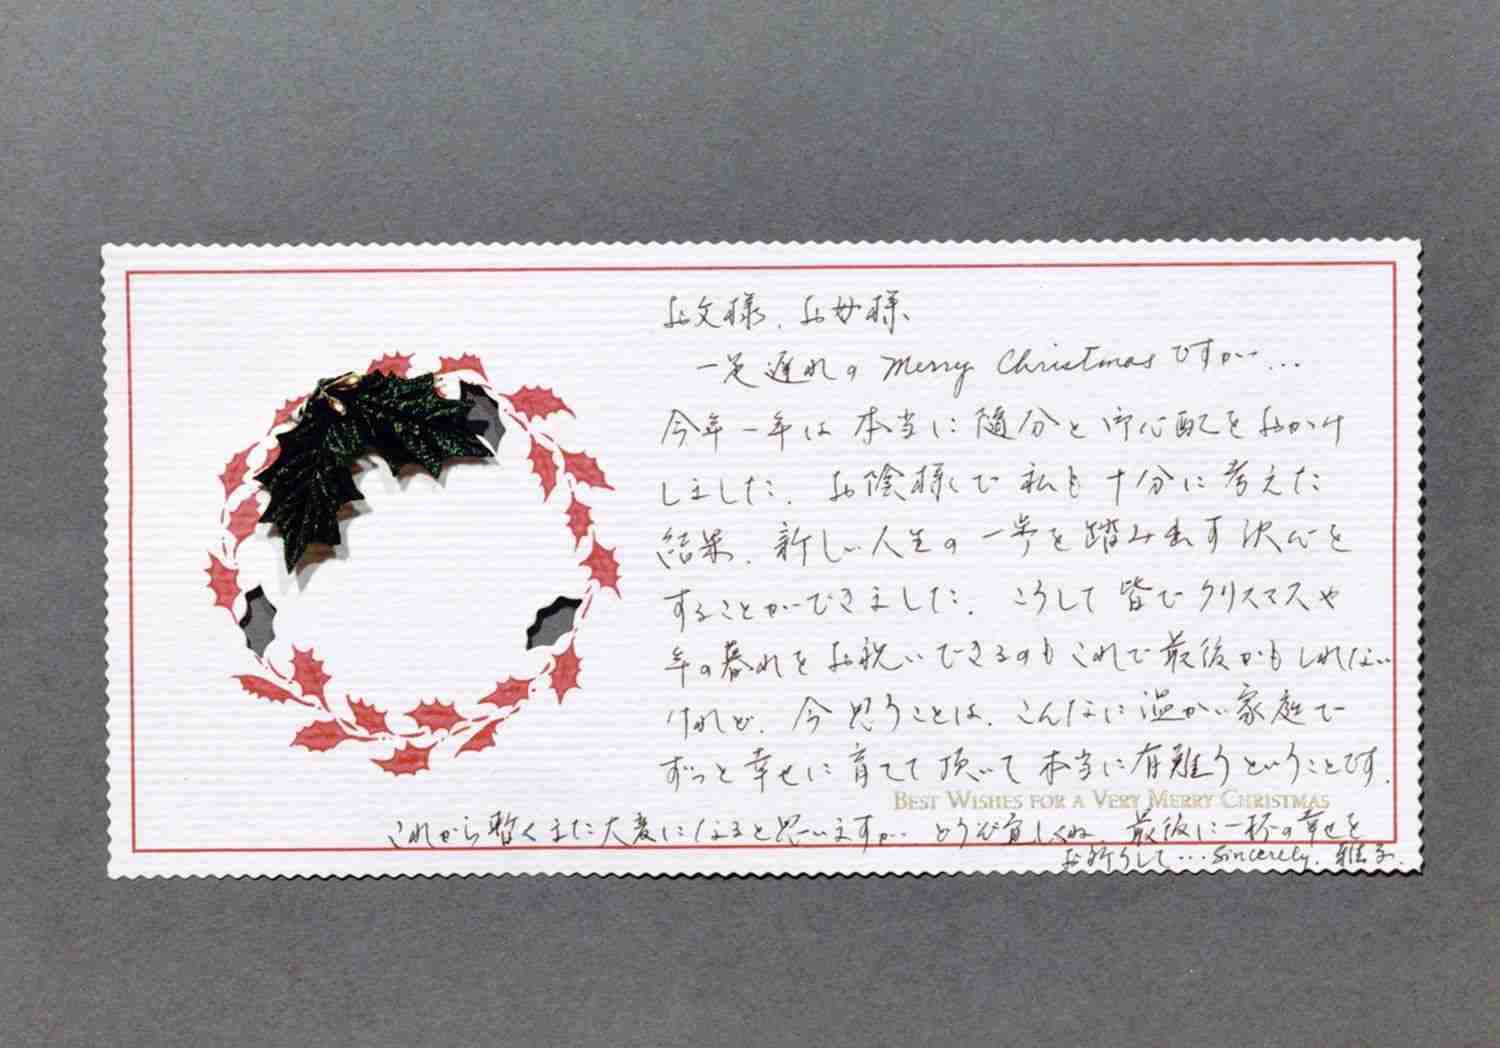 お父様、お母様
一足遅れの Merry Christmas ですが…
今年一年は本当に随分と御心配をおかけ
しました。お陰様で私も十分に考えた
結果、新しい人生の一歩を踏み出す決心を
することができました。こうして皆でクリスマスや
年の暮れをお祝いできるのもこれで最後かもしれない
けれど、今思うことは、こんなに温かい家庭で
ずっと幸せに育てて頂いて本当に有難うということです。
BEST WISHES FOR A VERY MERRY CHRISTMAS
これから暫くまた大変になると思いますが、どうぞ宜しくね。最後に一杯の幸せを
お祈りして…Sincerely, 雅子.